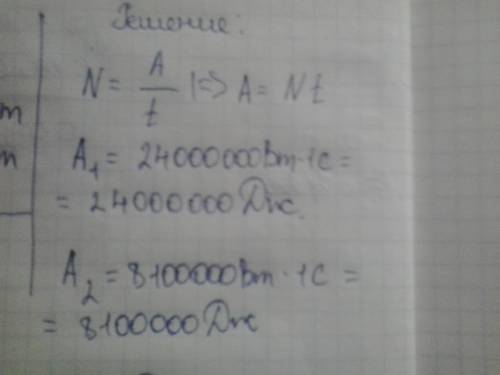 Решение:
N = A/t |=> A = Nt
m
A₁ = 24000000Вт·1с =
n
= 24000000 Дж.
A₂ = 8100000Вт·1с =
= 8100000 Дж